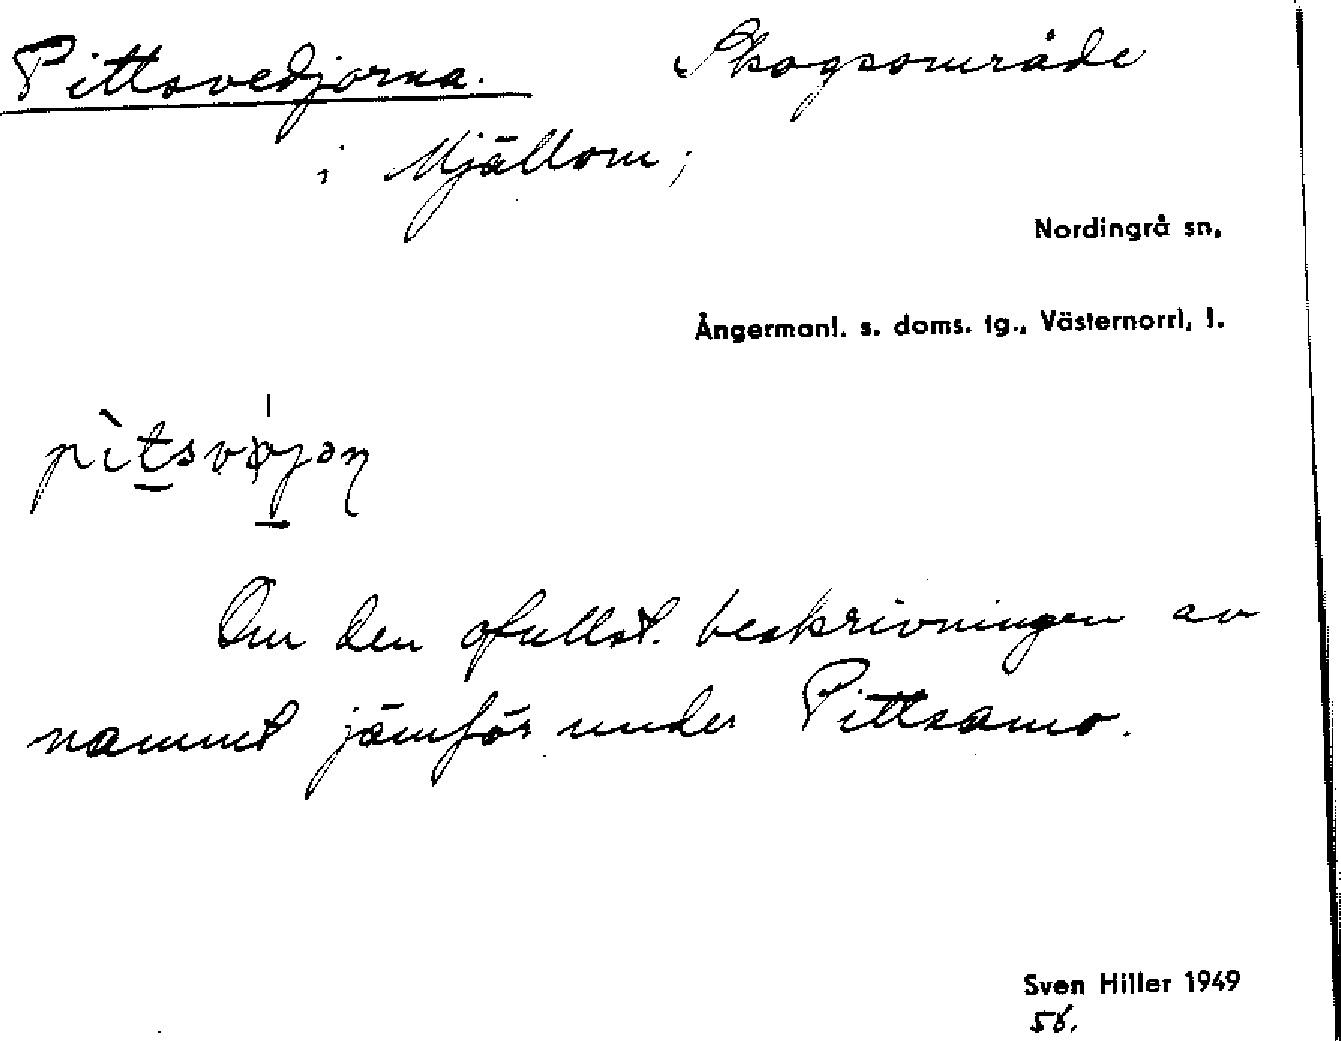 Pittsvedjorna. Skogsområde
i Mjällom;
Nordingrå sn,
Ångermanl. s. doms. tg., Västernorrl, l.
Om den ofullst. beskrivningen av
namnet jämför under Pittsamo.
Sven Hiller 1949